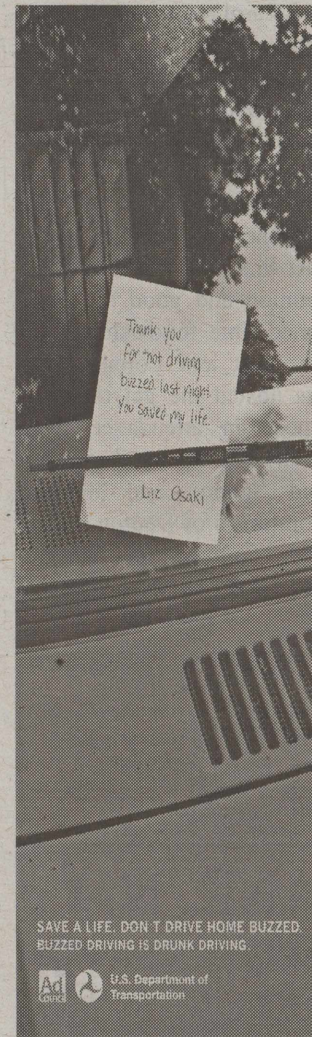 Thank you
for not driving
buzzed last night
You saved my life.
Liz Osaki
SAVE A LIFE. DON T DRIVE HOME BUZZED.
BUZZED DRIVING IS DRUNK DRIVING.
Ad
Council
U.S. Department of
Transportation